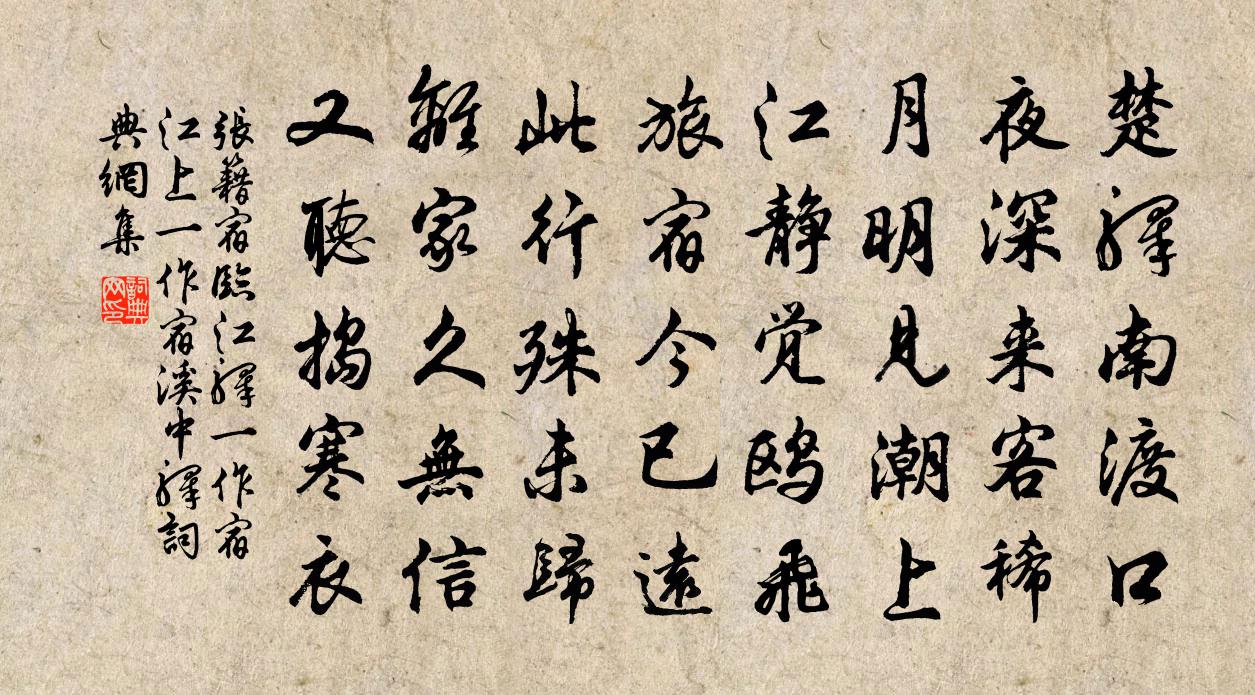 楚驛南渡口
夜深来客稀
月明見潮上
江静覺鸥飛
旅宿今已遠
此行殊未歸
離家久無信
又聽搗寒衣
張籍宿臨江驛一作宿
江上一作宿溪中驛詞
典網集
詞典
网印